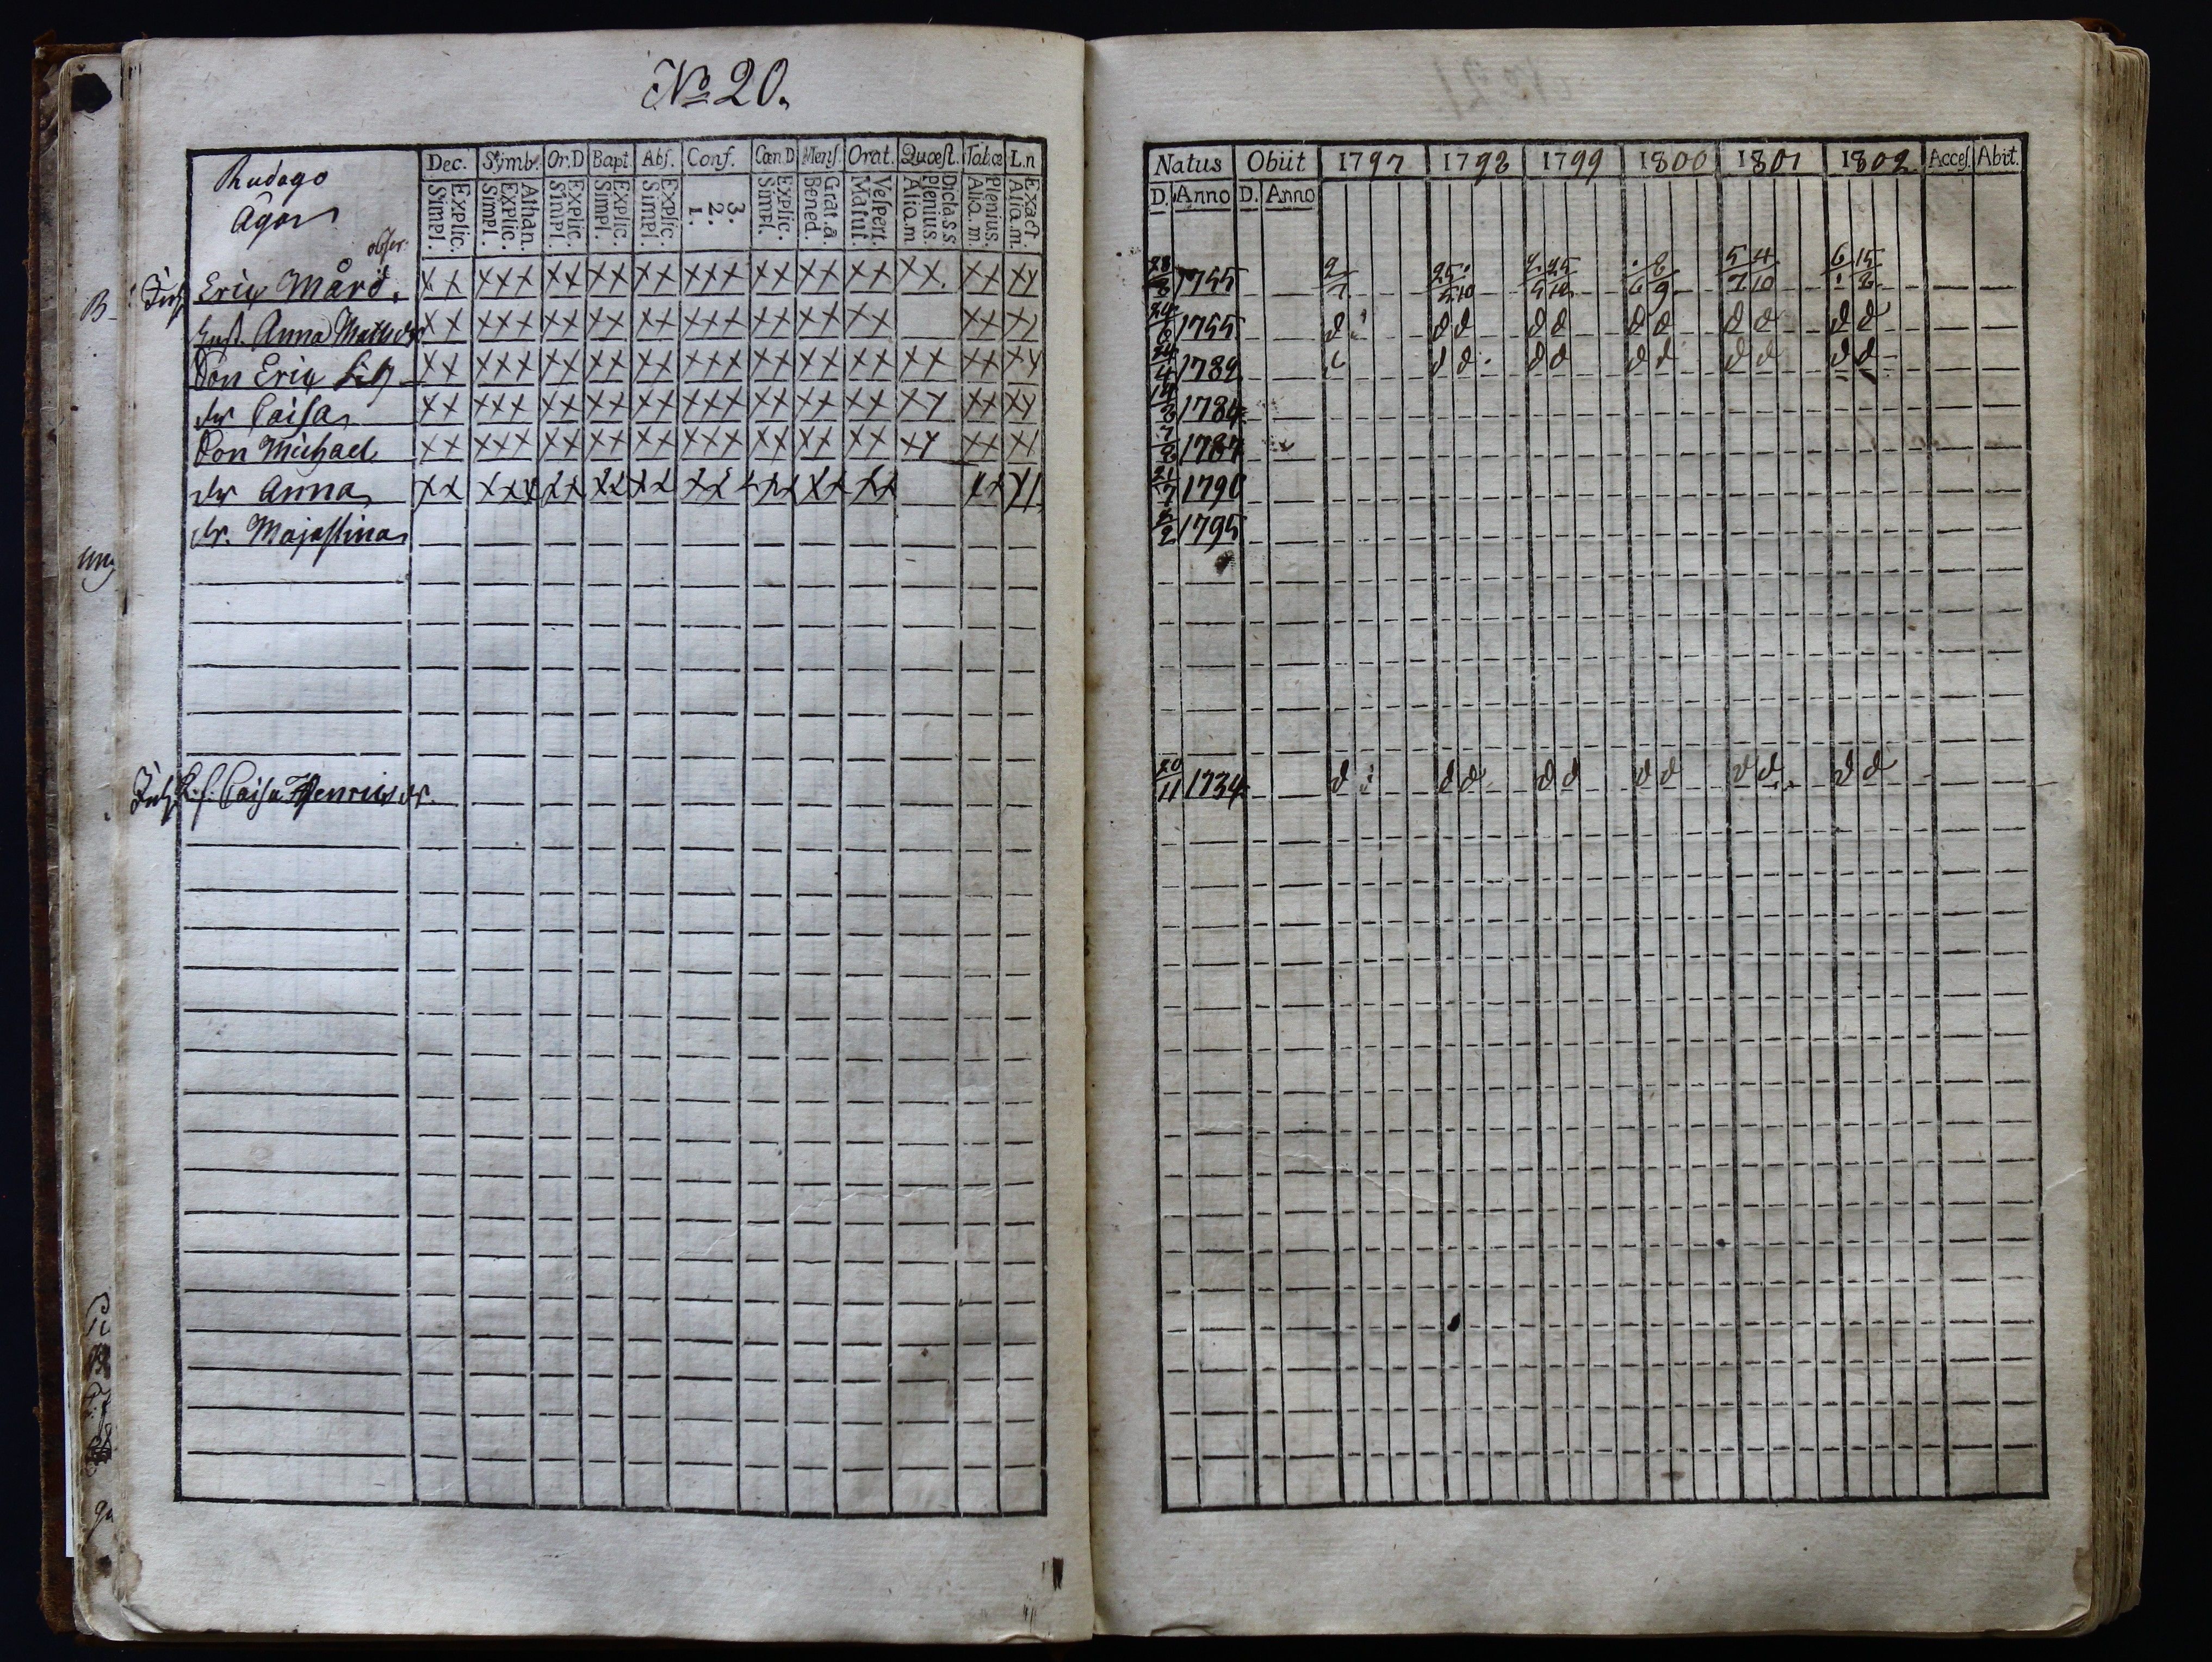 No 20.
Dec. Symb. Or.D Bapt. Abs. Conf. Cœn.D Mens. Orat. Quæst. Tab.œ L.n
Explic. Simpl. Athan. Explic. Simpl. Explic. Simpl. Explic. Simpl. Explic. Simpl. 3. 2. 1. Explic. Simpl. Grat. a. Bened. Vespert. Matut. Dicta.s.s Plenius. Alio.m Plenius. Alio.m. Exact. Alio.m.
Natus Obiit 1797 1798 1799 1800 1801 1802 Acces. Abit.
D. Anno D. Anno
Eric Mård. xx xxx xx xx xx xxx xx xx xx xx. xx xx 1755 2/7 5/7 4/10
Hust. Anna Mattsdr xx xxx xx xx xx xxx xx xx xx xx xx 1755 d d d d d d d d d d d
Son Eric xx xxx xx xx xx xxx xx xx xx xx xx xx 24/4 1782 d d d d d d d d d d
dr Caisa xx xxx xx xx xx xxx xx xx xx xx xx xx 1784
Son Michael xx xxx xx xx xx xxx xx xx xx xx xx xx 1787
dr Anna xx xxx xx xx xx xxx xx xx xx xx xx 21/7 1790
dr. Majastina 1795
Caisa Henricsdr. 20/11 1734 d d d d d d d d d d d